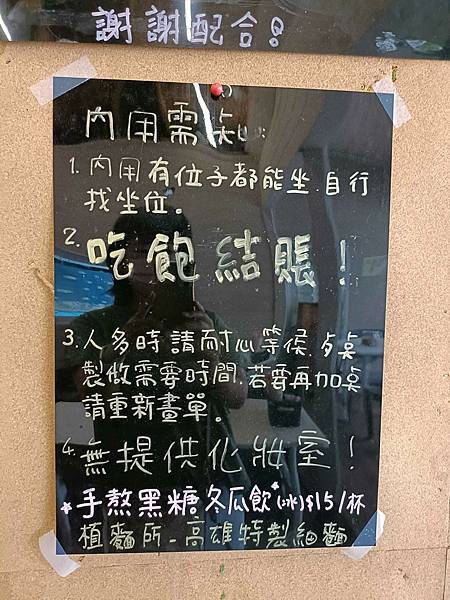 謝謝配合!
內用需知:
1. 內用有位子都能坐.自行
找坐位。
2. 吃飽結賬!
3. 人多時請耐心等候.多桌
製做需要時間.若要再加桌
請重新畫單。
4. 無提供化妝室!
*手熬黑糖冬瓜飲*(冰)$15/杯
植麵所-高雄特製細麵